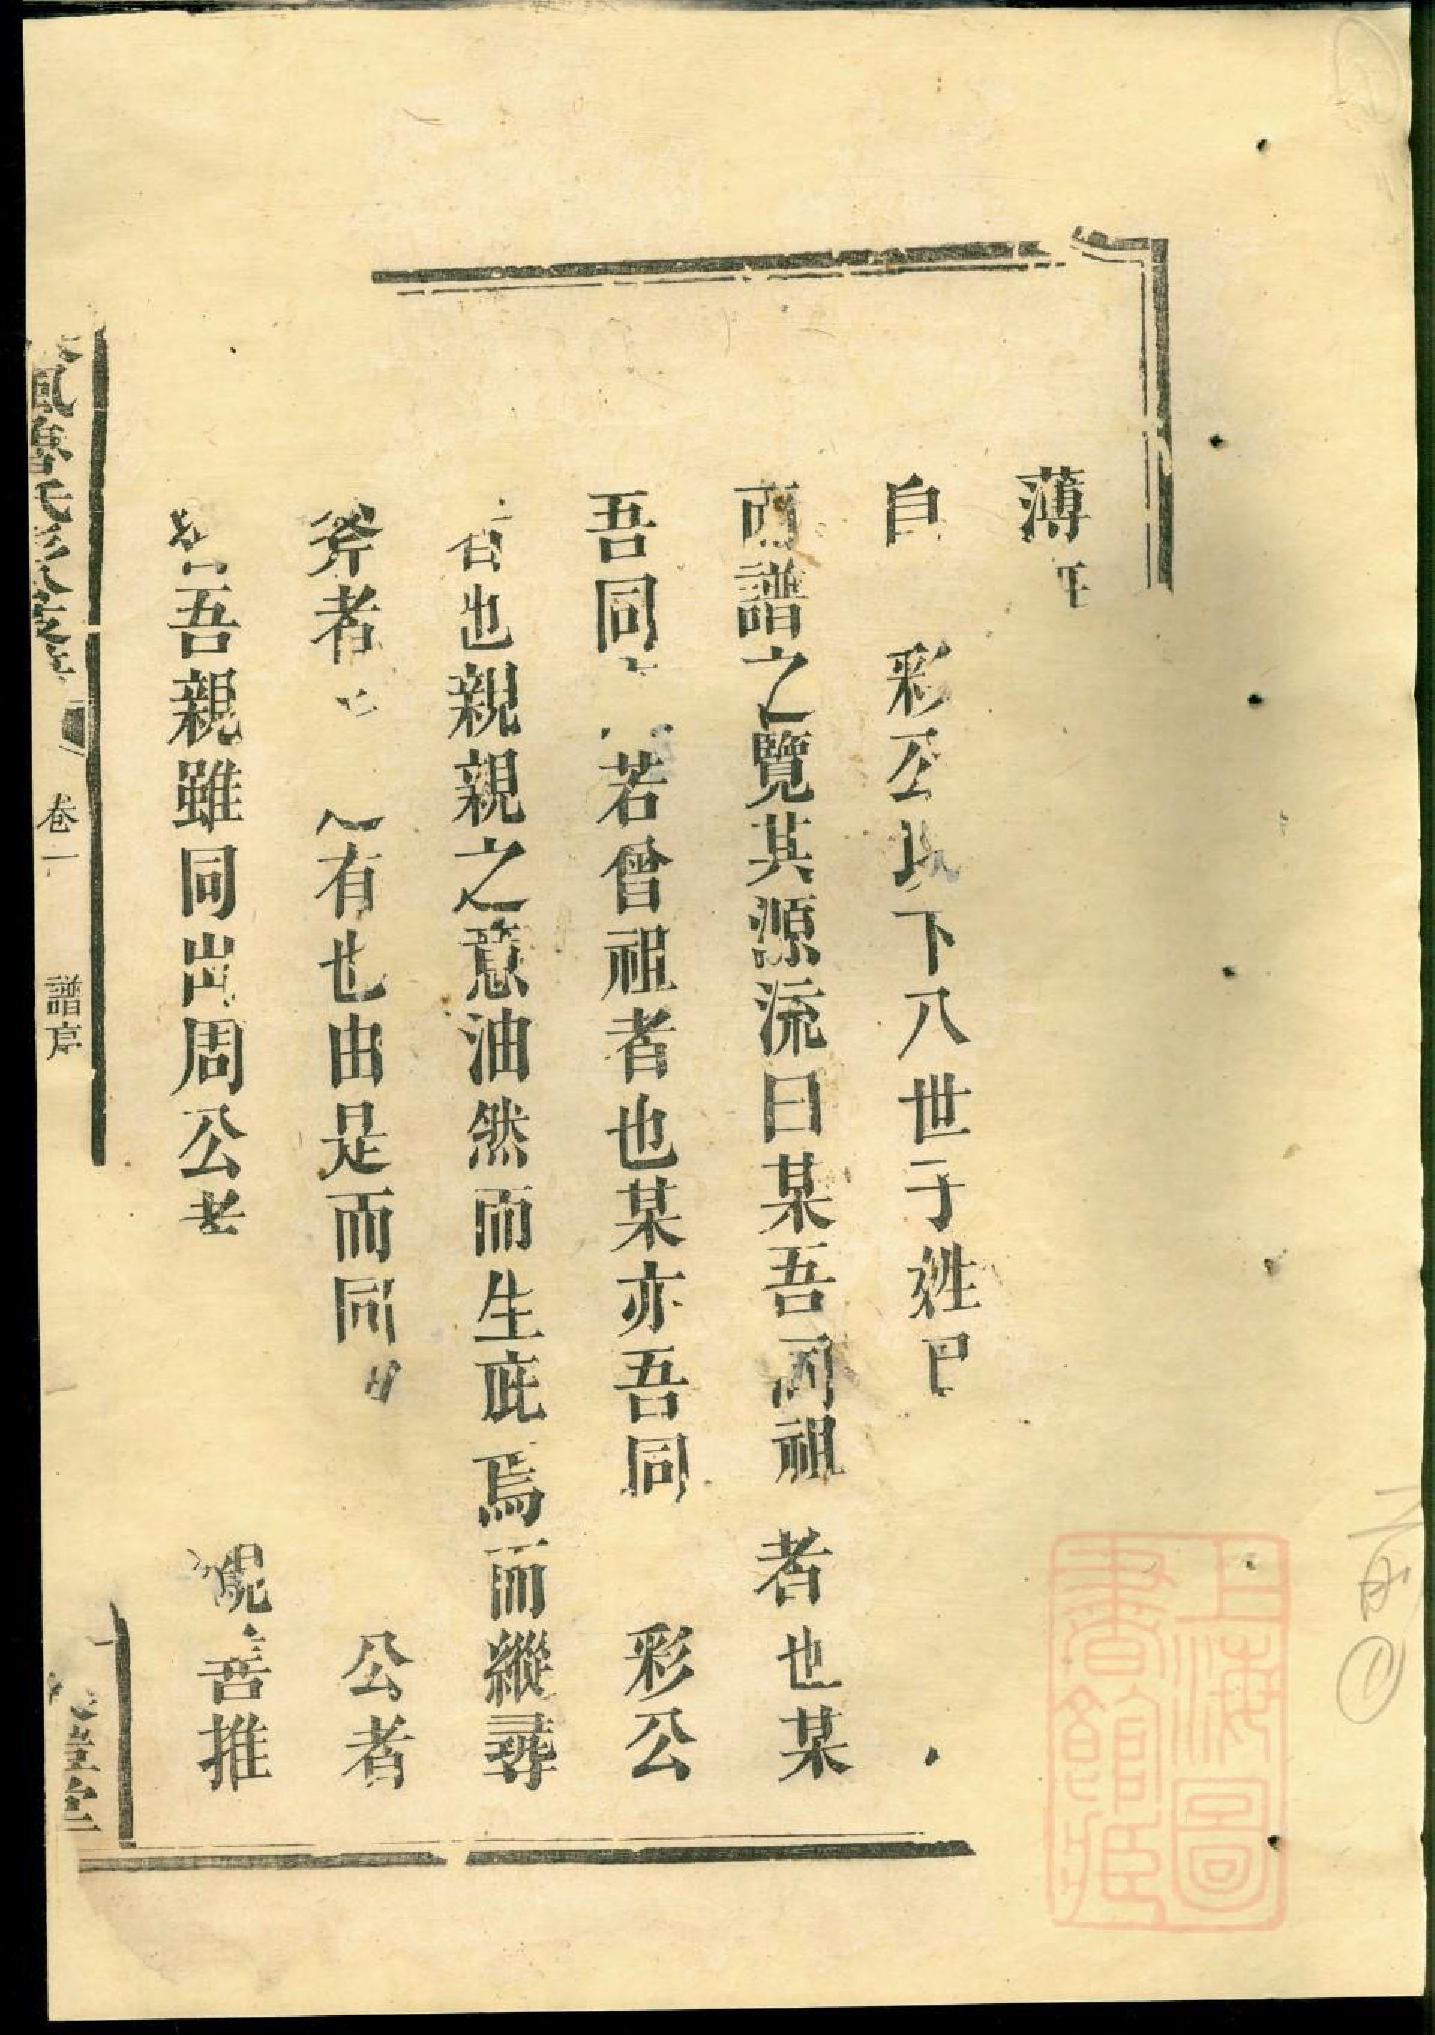 薄
自 彩公以下八世于姓
而譜之覽其源流曰某吾同祖者也某
吾同 若曾祖者也某亦吾同 彩公
者也親親之意油然而生庇焉而縱尋
斧者 有也由是而同 公者
吾親雖同出周公者 親善推
風魯氏 卷一 譜序
堂
上海圖書館藏